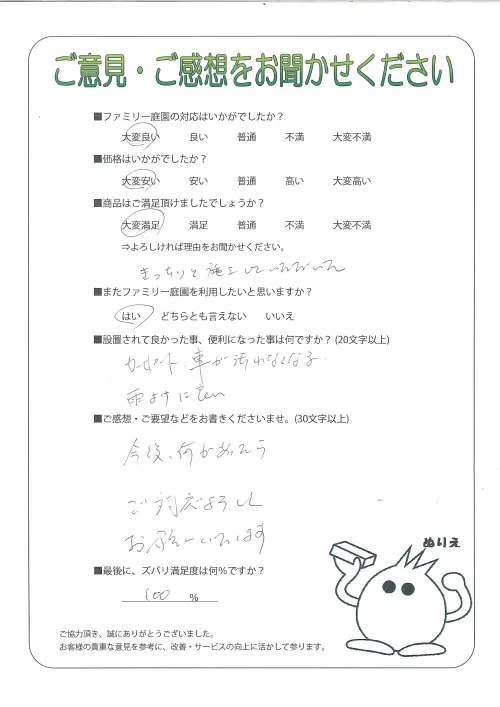 ご意見・ご感想をお聞かせください
■ファミリー庭園の対応はいかがでしたか？
大変良い 良い 普通 不満 大変不満
■価格はいかがでしたか？
大変安い 安い 普通 高い 大変高い
■商品はご満足頂けましたでしょうか？
大変満足 満足 普通 不満 大変不満
⇒よろしければ理由をお聞かせください。
きっちりと施工していただいた
■またファミリー庭園を利用したいと思いますか？
はい どちらとも言えない いいえ
■設置されて良かった事、便利になった事は何ですか？(20文字以上)
カーポート、車が汚れなくなる
雨よけに良い
■ご感想・ご要望などをお書きくださいませ。(30文字以上)
今後、何かあれば
ご対応よろしく
お願いいたします
ぬりえ
■最後に、ズバリ満足度は何％ですか？
100 %
ご協力頂き、誠にありがとうございました。
お客様の貴重な意見を参考に、改善・サービスの向上に活かして参ります。